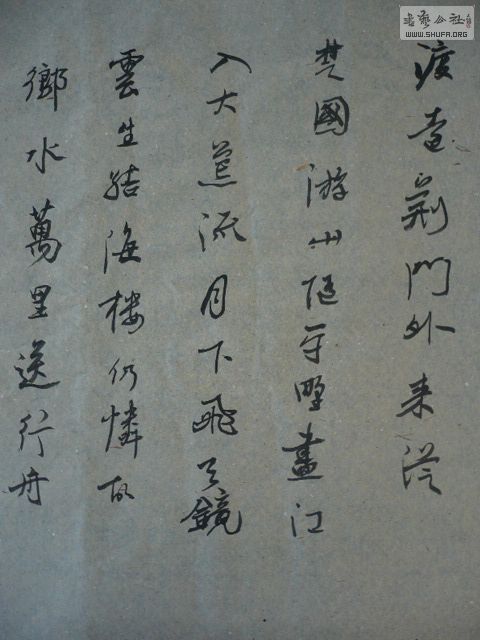 書藝公社
WWW.SHUFA.ORG
渡遠荆門外来從
楚國游山随平野盡江
入大荒流月下飛天鏡
雲生結海楼仍憐故
鄉水萬里送行舟